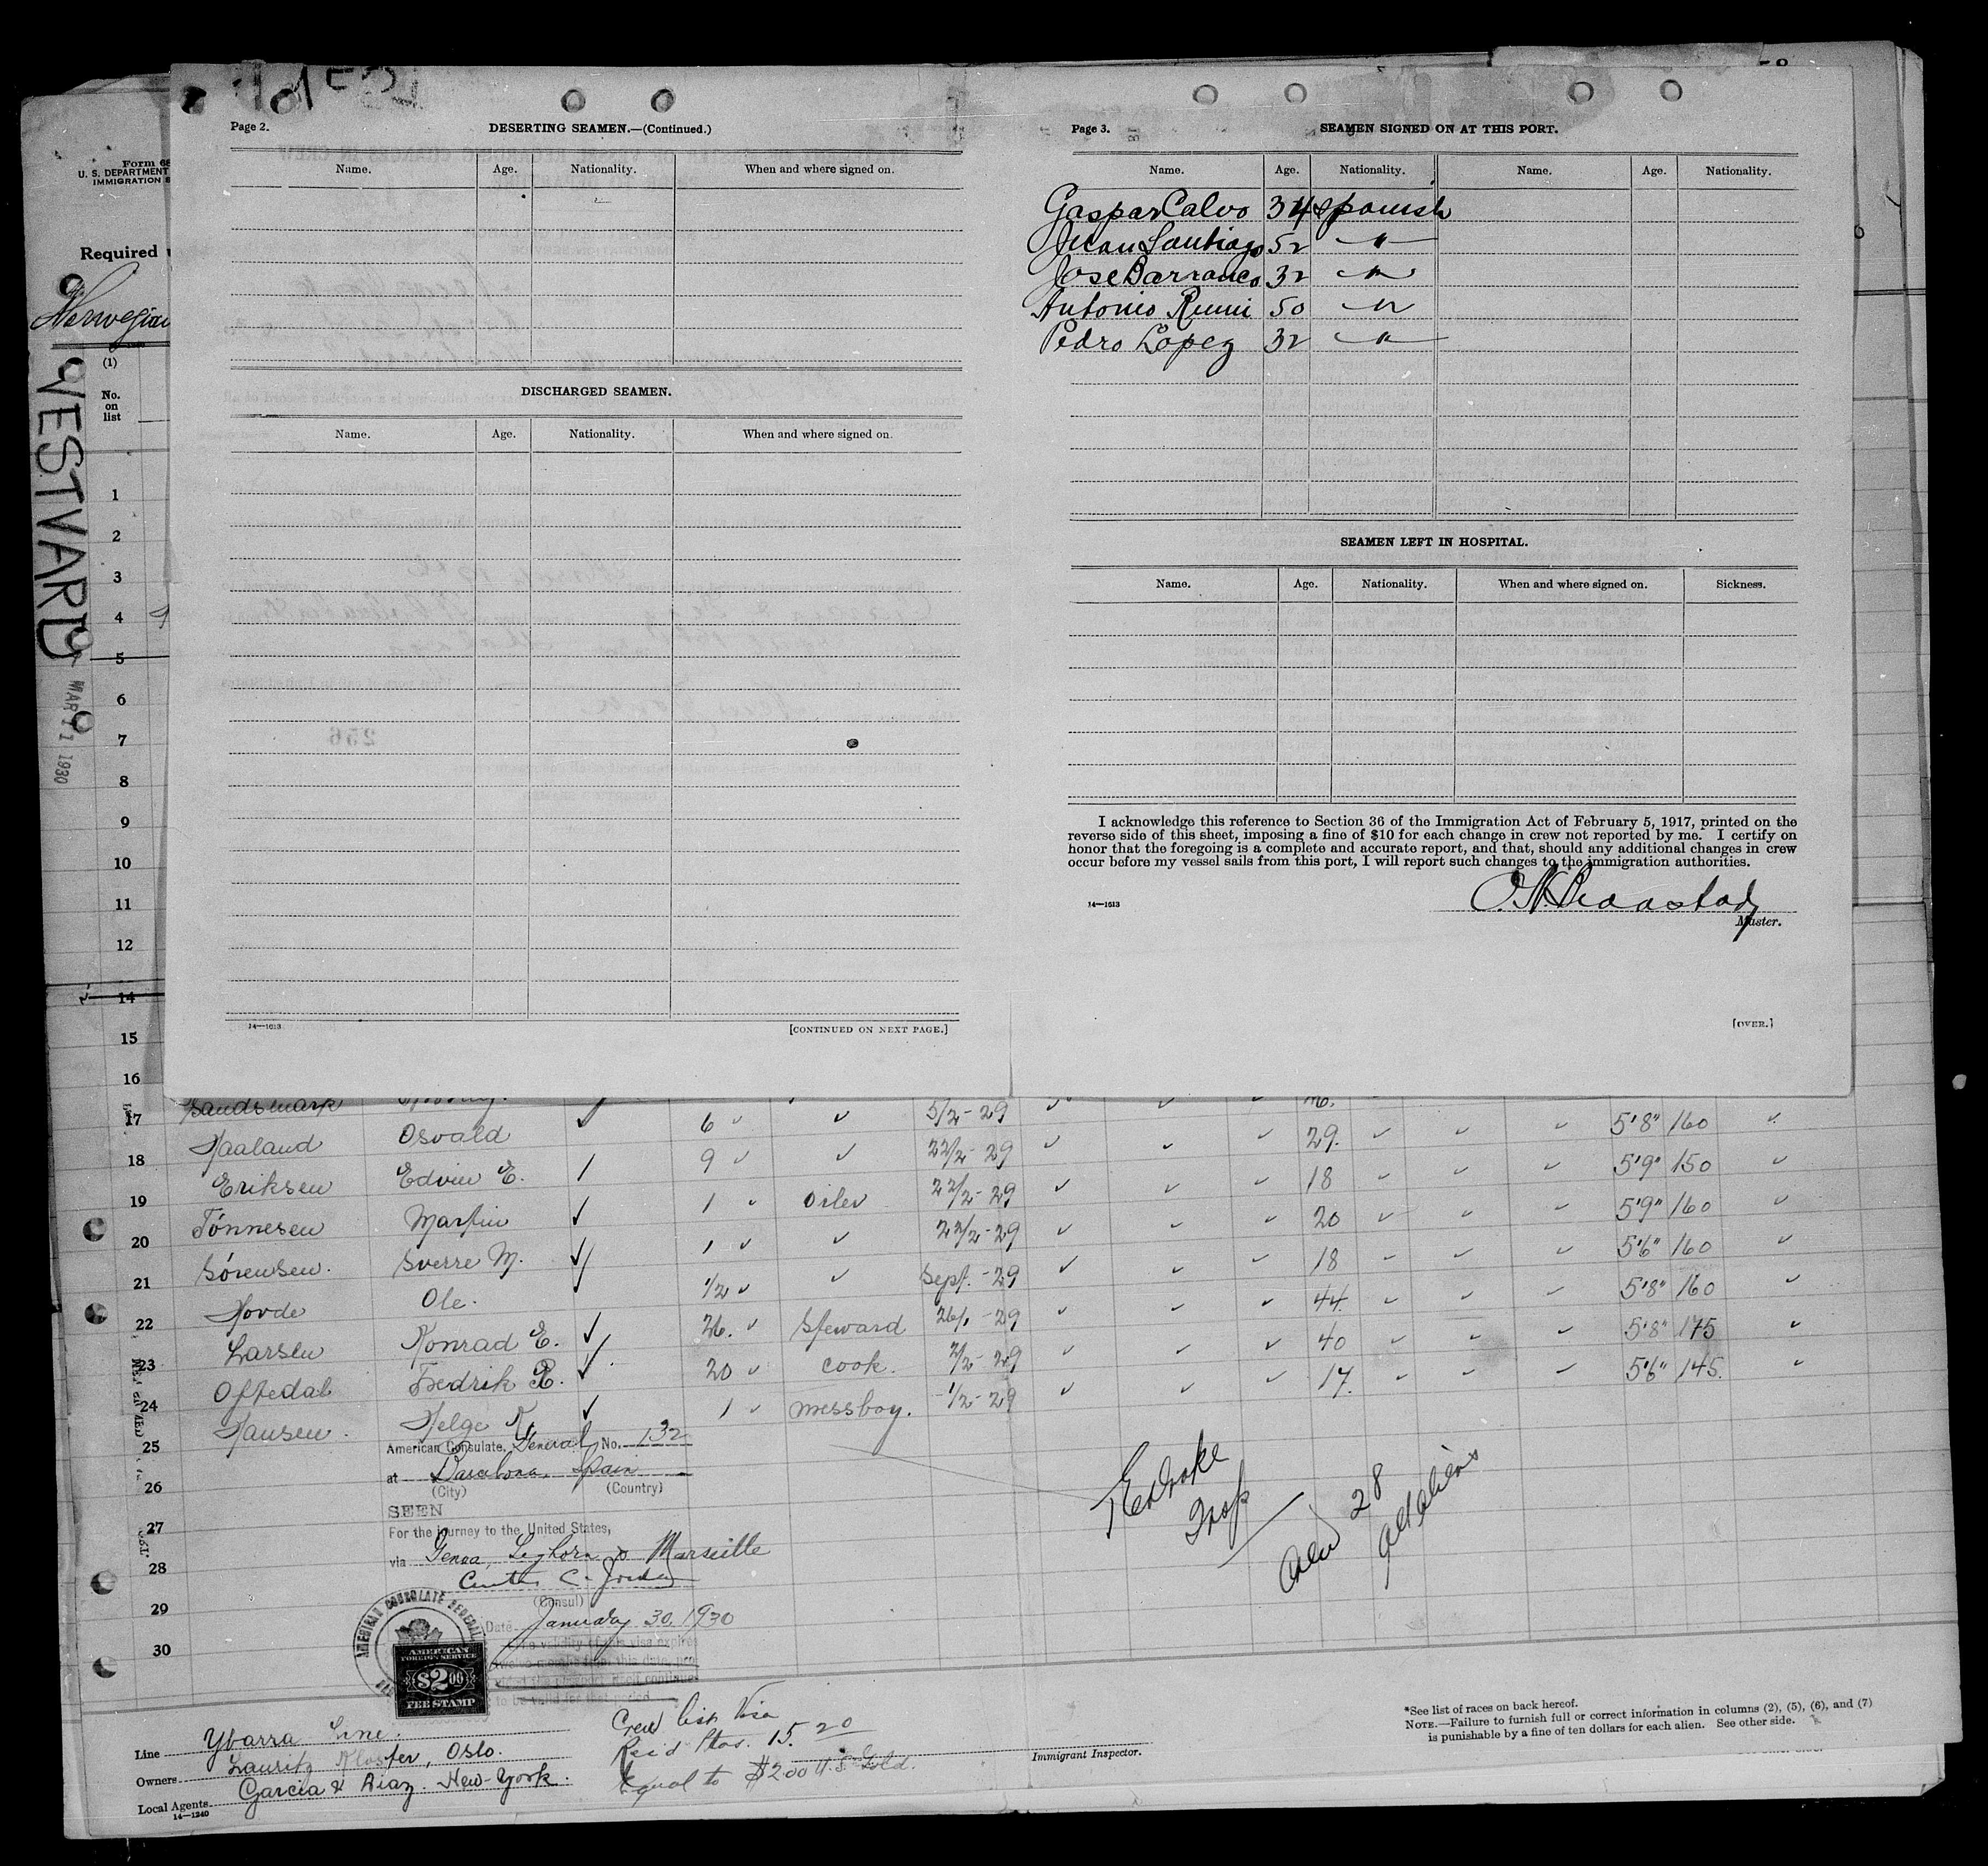 Form 68
U. S. DEPARTMENT
IMMIGRATION S
Required
Norwegian
WESTVARD
MAR 11 1930
(1)
No.
on
list
Page 2.
DESERTING SEAMEN.—(Continued.)
Name. Age. Nationality. When and where signed on.
DISCHARGED SEAMEN.
Name. Age. Nationality. When and where signed on.
14—1613
[CONTINUED ON NEXT PAGE.]
Page 3.
SEAMEN SIGNED ON AT THIS PORT.
Name. Age. Nationality. Name. Age. Nationality.
Gaspar Calvo 34 Spanish
Juan Santiago 52 "
Jose Barranco 32 "
Antonio 50 "
Pedro Lopez 32 "
SEAMEN LEFT IN HOSPITAL.
Name. Age. Nationality. When and where signed on. Sickness.
I acknowledge this reference to Section 36 of the Immigration Act of February 5, 1917, printed on the
reverse side of this sheet, imposing a fine of $10 for each change in crew not reported by me. I certify on
honor that the foregoing is a complete and accurate report, and that, should any additional changes in crew
occur before my vessel sails from this port, I will report such changes to the immigration authorities.
14—1613
Master.
[OVER.]
1
2
3
4
5
6
7
8
9
10
11
12
14
15
16
17 Sandsmark 6 5/2-29 5'8" 160
18 Haaland Osvald 9 22/2-29 29. 5'9" 150
19 Eriksen Edvin E. 1 oiler 22/2-29 18 5'9" 160
20 Tónnesen Martin 1 22/2-29 20 5'6" 160
21 Sórensen. Sverre M. 1/2 Sept.-29 18 5'8" 160
22 Hovde Ole. 26. Steward 26/1-29 44 5'8" 175
23 Larsen Konrad E. 20 cook. 2/2-29 40 5'6" 145.
24 Offedal Fredrik R. 1 messboy. -1/2-29 17.
25 Hansen. Helge K.
26
27
28
29
30
American Consulate General No. 132
at Barcelona, Spain
(City) (Country)
SEEN
For the journey to the United States,
via Genoa, Leghorn & Marseille
(Consul)
Date January 30, 1930
AMERICAN CONSULATE GENERAL
AMERICAN
FOREIGN SERVICE
$2.00
FEE STAMP
Crew 28
all aliens
Crew list Visa
Rec'd Ptas. 15.20
Equal to $2.00 U.S. Gold.
Line Ybarra Line.
Owners Lauritz Kloster, Oslo.
Local Agents Garcia & Diaz. New-York.
14—1240
Immigrant Inspector.
*See list of races on back hereof.
NOTE.—Failure to furnish full or correct information in columns (2), (5), (6), and (7)
is punishable by a fine of ten dollars for each alien. See other side.